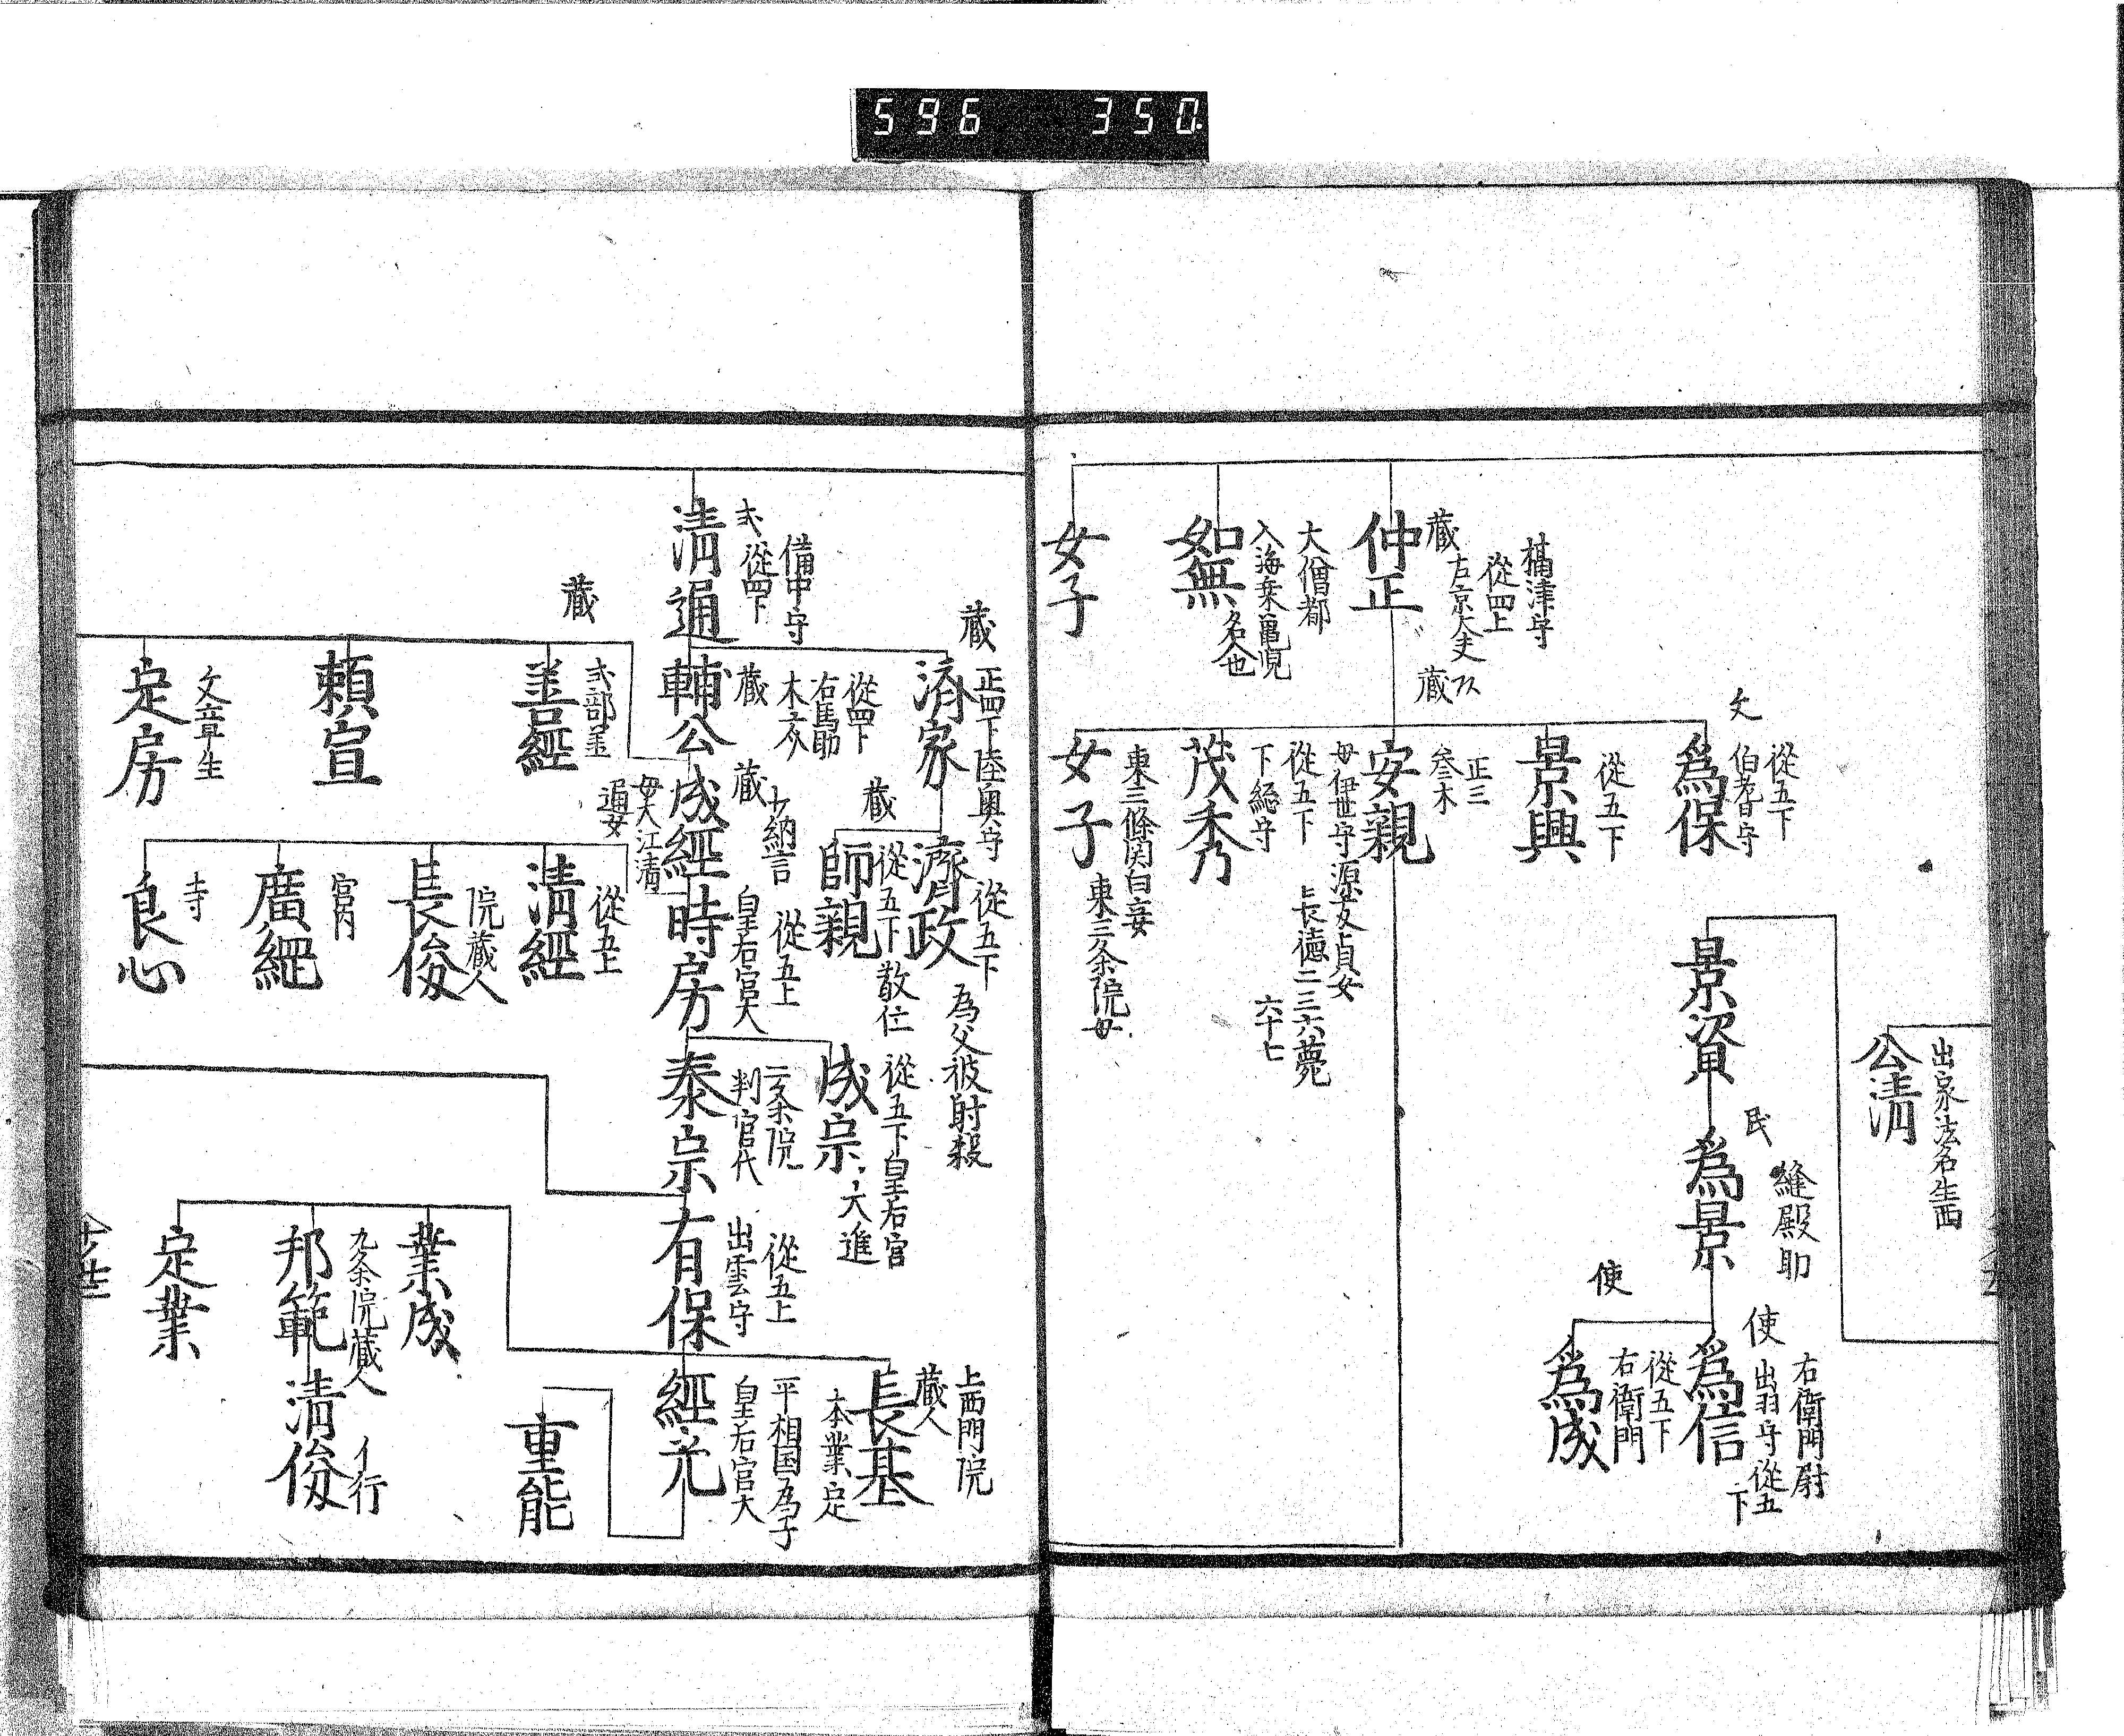 596 350
出家法名生西
公清
景資
民
縫殿助
為景
使
右衛門尉
出羽守従五下
為信
使
従五下
右衛門
為成
文
従五下
伯耆守
為保
従五下
景興
摂津守
従四上
右京大夫
蔵
仲正
蔵
正三
参木
安親
母伊世守源友貞女
長徳二三六薨
六十七
従五下
下総守
茂秀
東三條関白妾
東三条院母
女子
大僧都
入海乗亀児
名人也
如無
女子
備中守
従四下
式
清通
蔵
正四下陸奥守
済家
従五下
為父被射殺
済政
蔵
従五下
散位
師親
従四下
右馬助
木工介
蔵
輔公
少納言
蔵
成経
母大江清通女
従五上
皇后宮大
時房
従五下皇后宮
大進
成宗
二条院
判官代
泰宗
従五上
出雲守
有保
上西門院
蔵人
本業定
長基
平相国為子
皇后宮大
経光
重能
蔵
式部丞
善経
頼宣
文章生
定房
従五上
清経
院蔵人
長俊
宮内
廣経
寺
良心
業成
九条院蔵人
邦範
イ行
清俊
定業